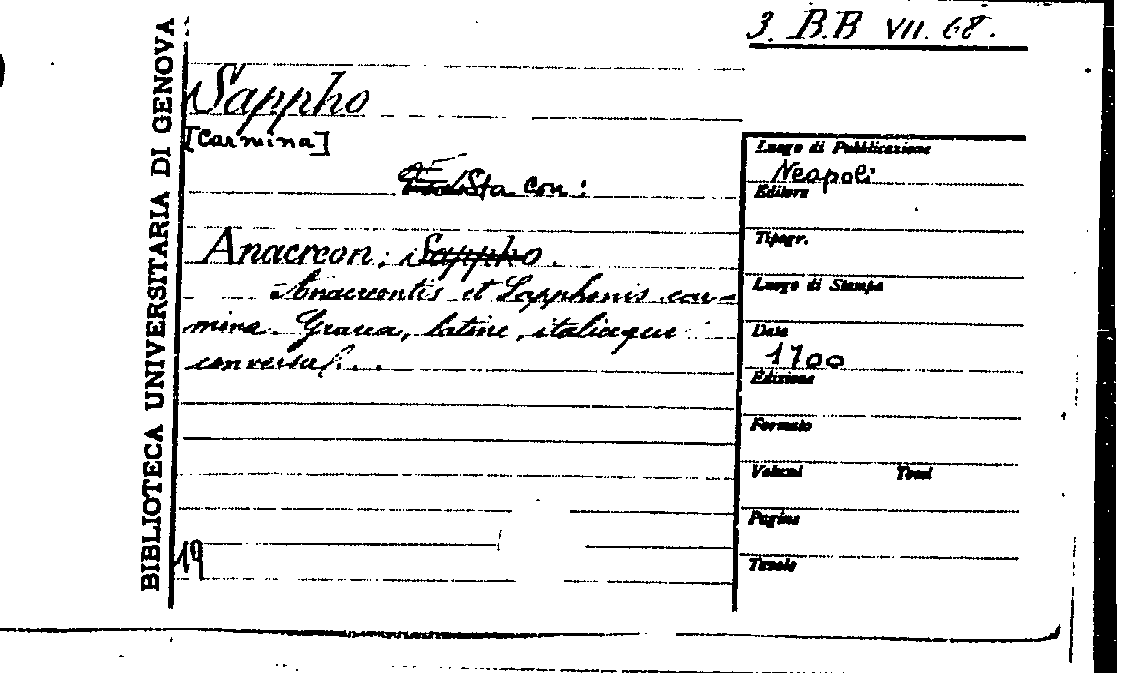 3. B.B VII. 68.
BIBLIOTECA UNIVERSITARIA DI GENOVA
Sappho
[Carmina]
Sta con:
Anacreon: Sappho.
Anacreontis et Sapphonis car=
mina. Graeca, latine, italiceque
conversa...
19
Luogo di Pubblicazione
Neapoli
Editore
Tipogr.
Luogo di Stampa
Data
1700
Edizione
Formato
Volumi Tomi
Pagine
Tavole